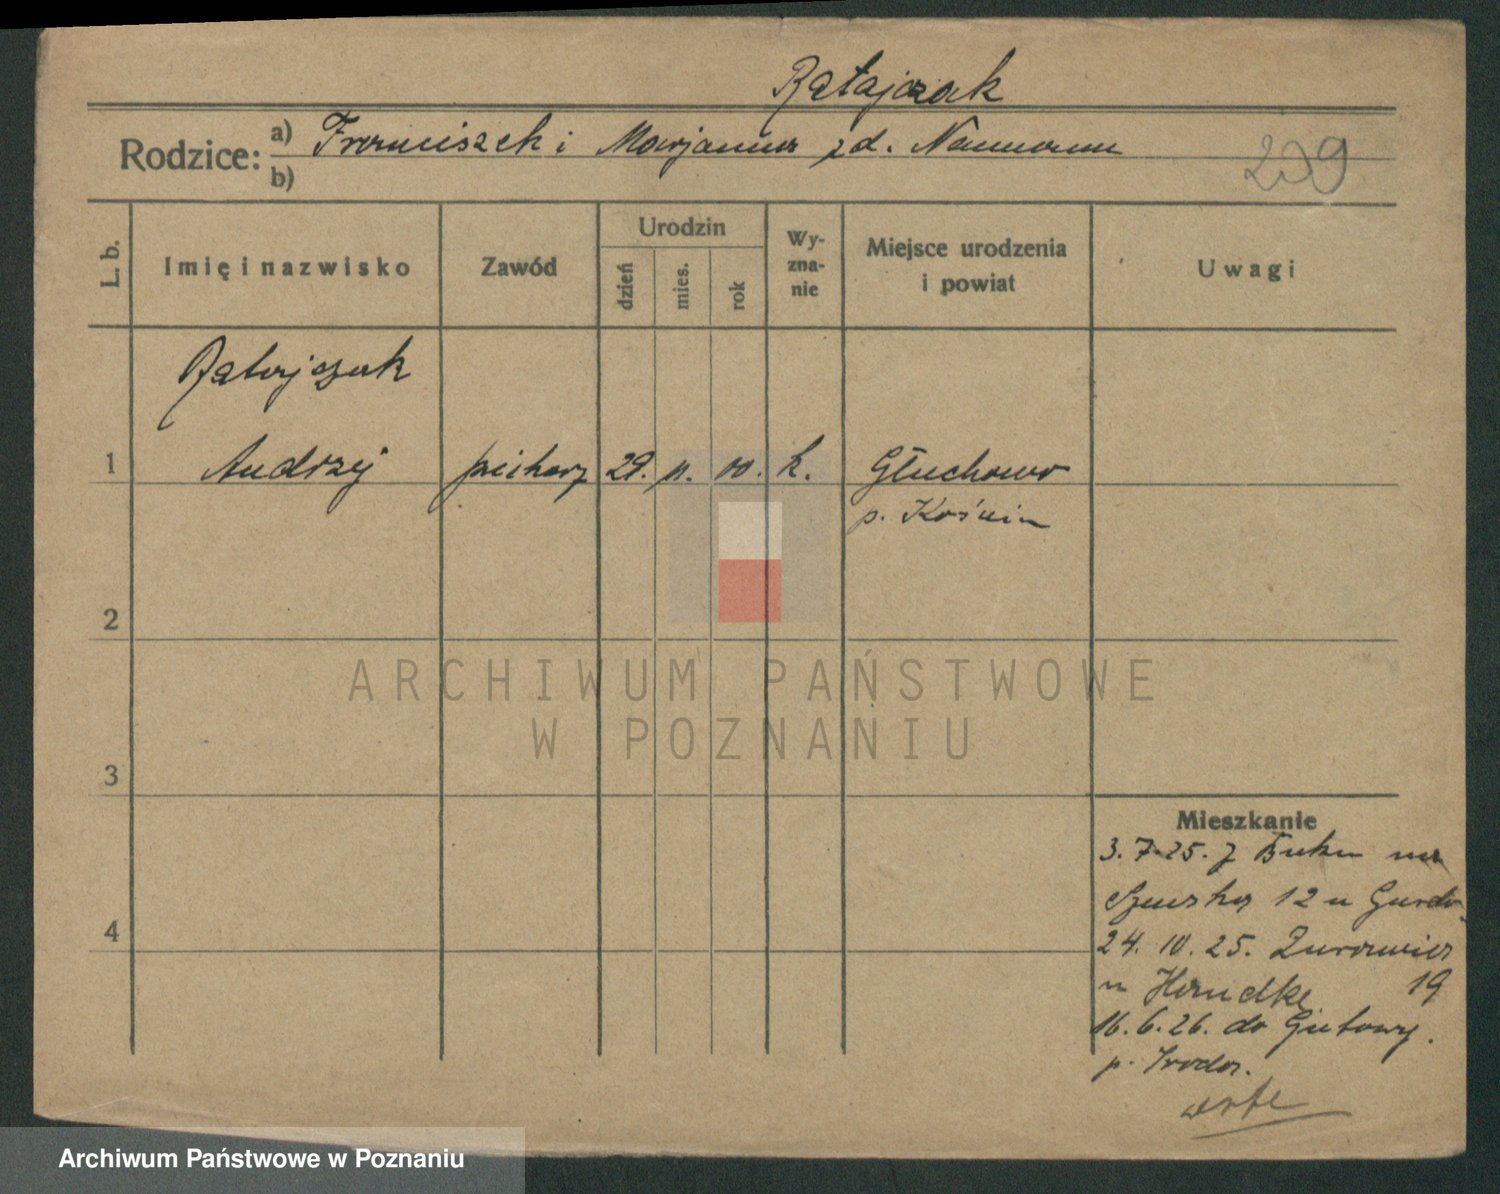 Ratajczak
Rodzice: a) Franciszek i Marjanna zd. Naumann
b)
209
L. b.
Imię i nazwisko
Zawód
Urodzin
dzień
mies.
rok
Wy-
zna-
nie
Miejsce urodzenia
i powiat
Uwagi
Ratajczak
1 Andrzej piekarz 29. 11. 00. k. Głuchowo
p. Kościan
2
3
4
ARCHIWUM PAŃSTWOWE
W POZNANIU
Mieszkanie
3. 7. 25. z Buku na
12 u
24. 10. 25. Żurawia
19
16. 6. 26. do Gutowy
p. Środa.
Archiwum Państwowe w Poznaniu